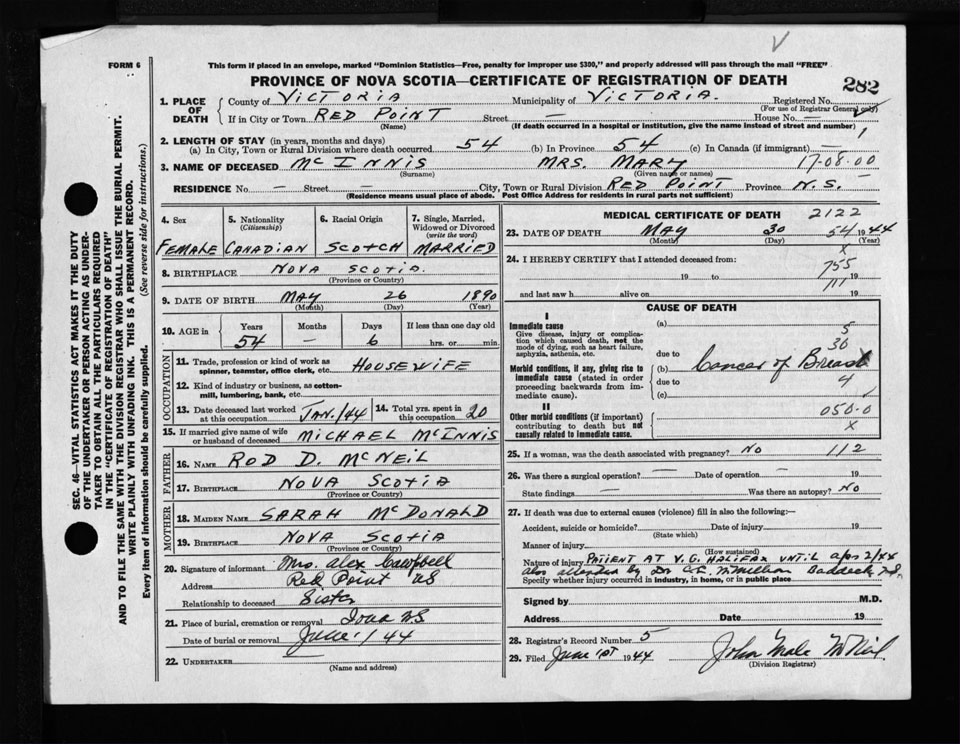 FORM 6
This form if placed in an envelope, marked "Dominion Statistics—Free, penalty for improper use $300," and properly addressed will pass through the mail "FREE"
PROVINCE OF NOVA SCOTIA—CERTIFICATE OF REGISTRATION OF DEATH
282
1. PLACE OF DEATH { County of VICTORIA Municipality of VICTORIA. Registered No.
(For use of Registrar General only)
If in City or Town RED POINT Street — House No. —
(Name) (If death occurred in a hospital or institution, give the name instead of street and number)
2. LENGTH OF STAY (in years, months and days) 1
(a) In City, Town or Rural Division where death occurred 54 (b) In Province 54 (c) In Canada (if immigrant) —
3. NAME OF DECEASED McINNIS MRS. MARY 17-08-00
(Surname) (Given name or names)
RESIDENCE No — Street — City, Town or Rural Division RED POINT Province N.S.
(Residence means usual place of abode. Post Office Address for residents in rural parts not sufficient)
4. Sex 5. Nationality (Citizenship) 6. Racial Origin 7. Single, Married, Widowed or Divorced (write the word)
FEMALE CANADIAN SCOTCH MARRIED
8. BIRTHPLACE NOVA SCOTIA.
(Province or Country)
9. DATE OF BIRTH MAY 26 1890
(Month) (Day) (Year)
10. AGE in Years Months Days If less than one day old
54 — 6 hrs. or min.
OCCUPATION
11. Trade, profession or kind of work as spinner, teamster, office clerk, etc. HOUSEWIFE
12. Kind of industry or business, as cotton-mill, lumbering, bank, etc.
13. Date deceased last worked at this occupation JAN./44 14. Total yrs. spent in this occupation 20
15. If married give name of wife or husband of deceased MICHAEL McINNIS
FATHER
16. NAME ROD D. McNEIL
17. BIRTHPLACE NOVA SCOTIA
(Province or Country)
MOTHER
18. MAIDEN NAME SARAH McDONALD
19. BIRTHPLACE NOVA SCOTIA
(Province or Country)
20. Signature of informant Mrs. Alex Campbell
Address Red Point NS
Relationship to deceased Sister
21. Place of burial, cremation or removal Iona N.S
Date of burial or removal June 1/44
22. UNDERTAKER —
(Name and address)
MEDICAL CERTIFICATE OF DEATH 2122
23. DATE OF DEATH MAY 30 54 1944
(Month) (Day) (Year)
x
24. I HEREBY CERTIFY that I attended deceased from:
755
19 to 19
111
and last saw h alive on 19
CAUSE OF DEATH
I
Immediate cause (a) 5
Give disease, injury or complication which caused death, not the mode of dying, such as heart failure, asphyxia, asthenia, etc.
30
due to
Morbid conditions, if any, giving rise to immediate cause (stated in order proceeding backwards from immediate cause). (b) Cancer of Breast
due to 4
(c)
II
Other morbid conditions (if important) contributing to death but not causally related to immediate cause. 050-0
x
25. If a woman, was the death associated with pregnancy? NO 112
26. Was there a surgical operation? — Date of operation — 19
State findings — Was there an autopsy? No
27. If death was due to external causes (violence) fill in also the following:—
Accident, suicide or homicide? Date of injury 19
(State which)
Manner of injury
(How sustained)
Nature of injury PATIENT AT V.G. HALIFAX UNTIL Apr 2/44
also attended by Dr McMillan Baddeck, N.S.
Specify whether injury occurred in industry, in home, or in public place
Signed by M.D.
Address Date 19
28. Registrar's Record Number 5
29. Filed June 1st 1944 John McNeil
(Division Registrar)
SEC. 46—VITAL STATISTICS ACT MAKES IT THE DUTY
OF THE UNDERTAKER OR PERSON ACTING AS UNDER-
TAKER TO OBTAIN ALL THE PARTICULARS REQUIRED
IN THE "CERTIFICATE OF REGISTRATION OF DEATH"
AND TO FILE THE SAME WITH THE DIVISION REGISTRAR WHO SHALL ISSUE THE BURIAL PERMIT.
WRITE PLAINLY WITH UNFADING INK. THIS IS A PERMANENT RECORD.
Every item of information should be carefully supplied. (See reverse side for instructions.)